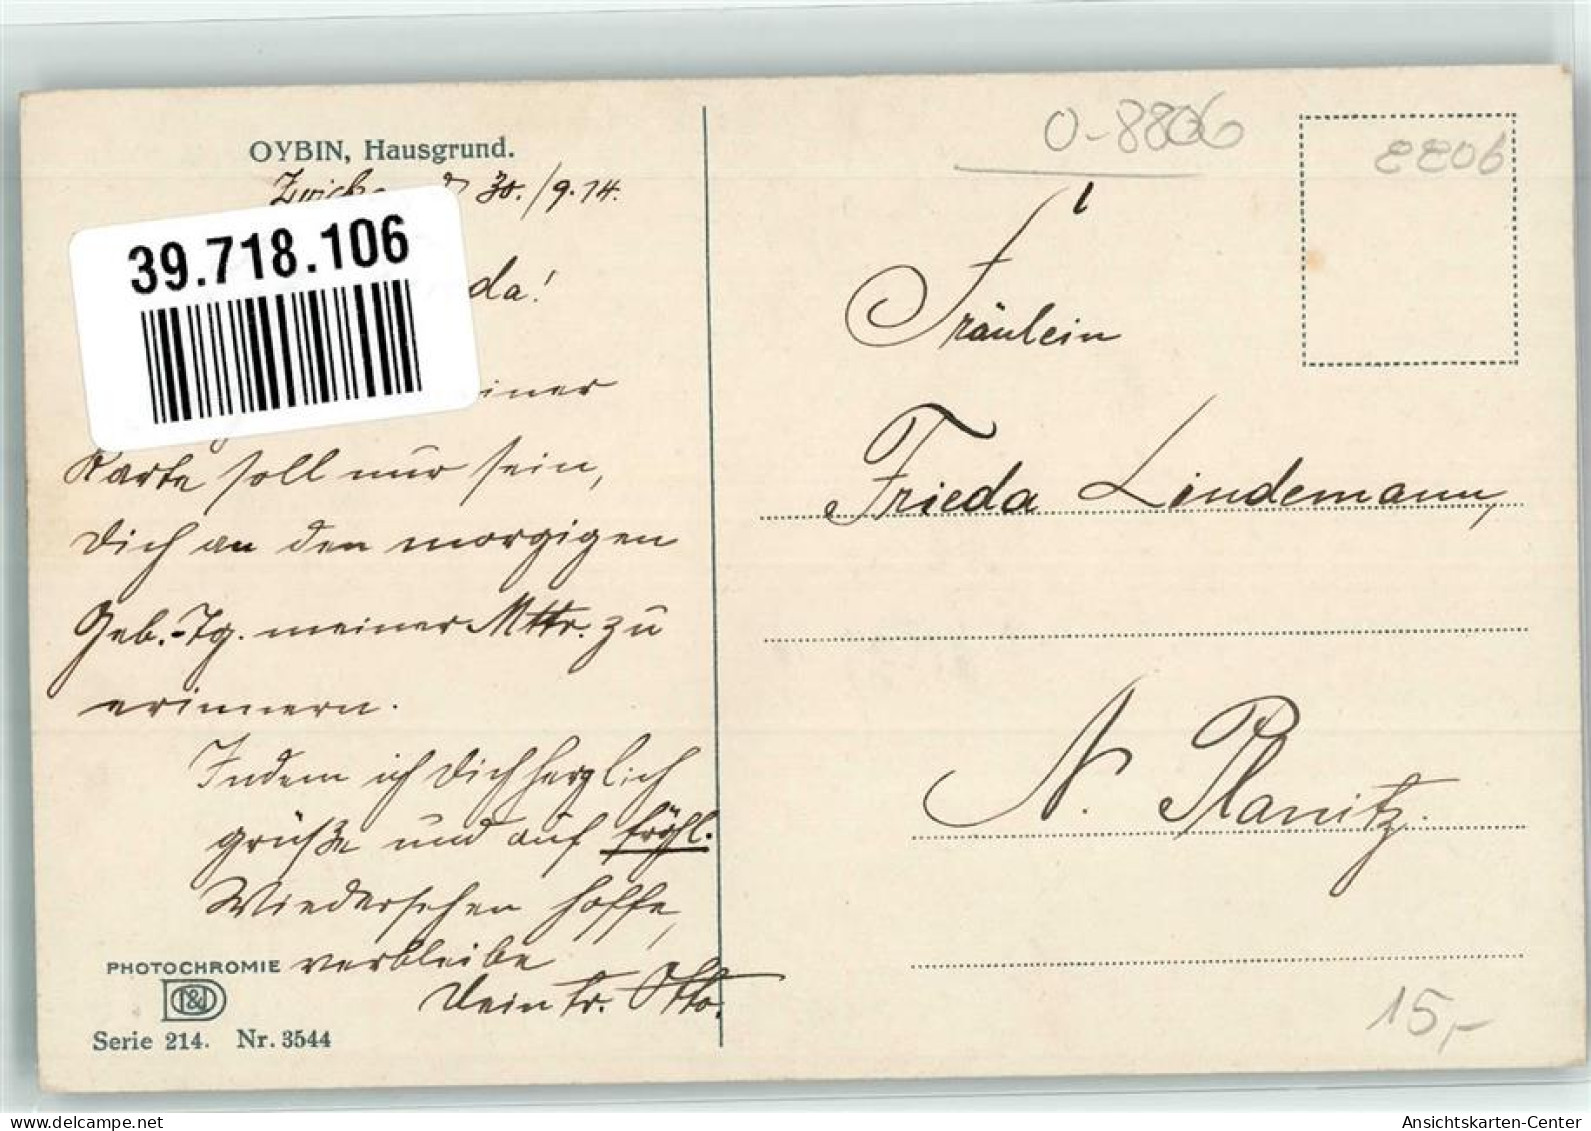 OYBIN, Hausgrund.
30./9.14.
39.718.106
da!
einer
Karte soll nur sein,
Dich an den morgigen
Geb.-Tg. meiner Mttr. zu
erinnern.
Indem ich Dich herzlich
grüße und auf fröhl.
Wiedersehen hoffe,
verbleibe
Dein tr. Otto.
PHOTOCHROMIE
Serie 214. Nr. 3544
O-8806
8806
Fräulein
Frieda Lindemann,
N. Planitz.
15,-
Ansichtskarten-Center